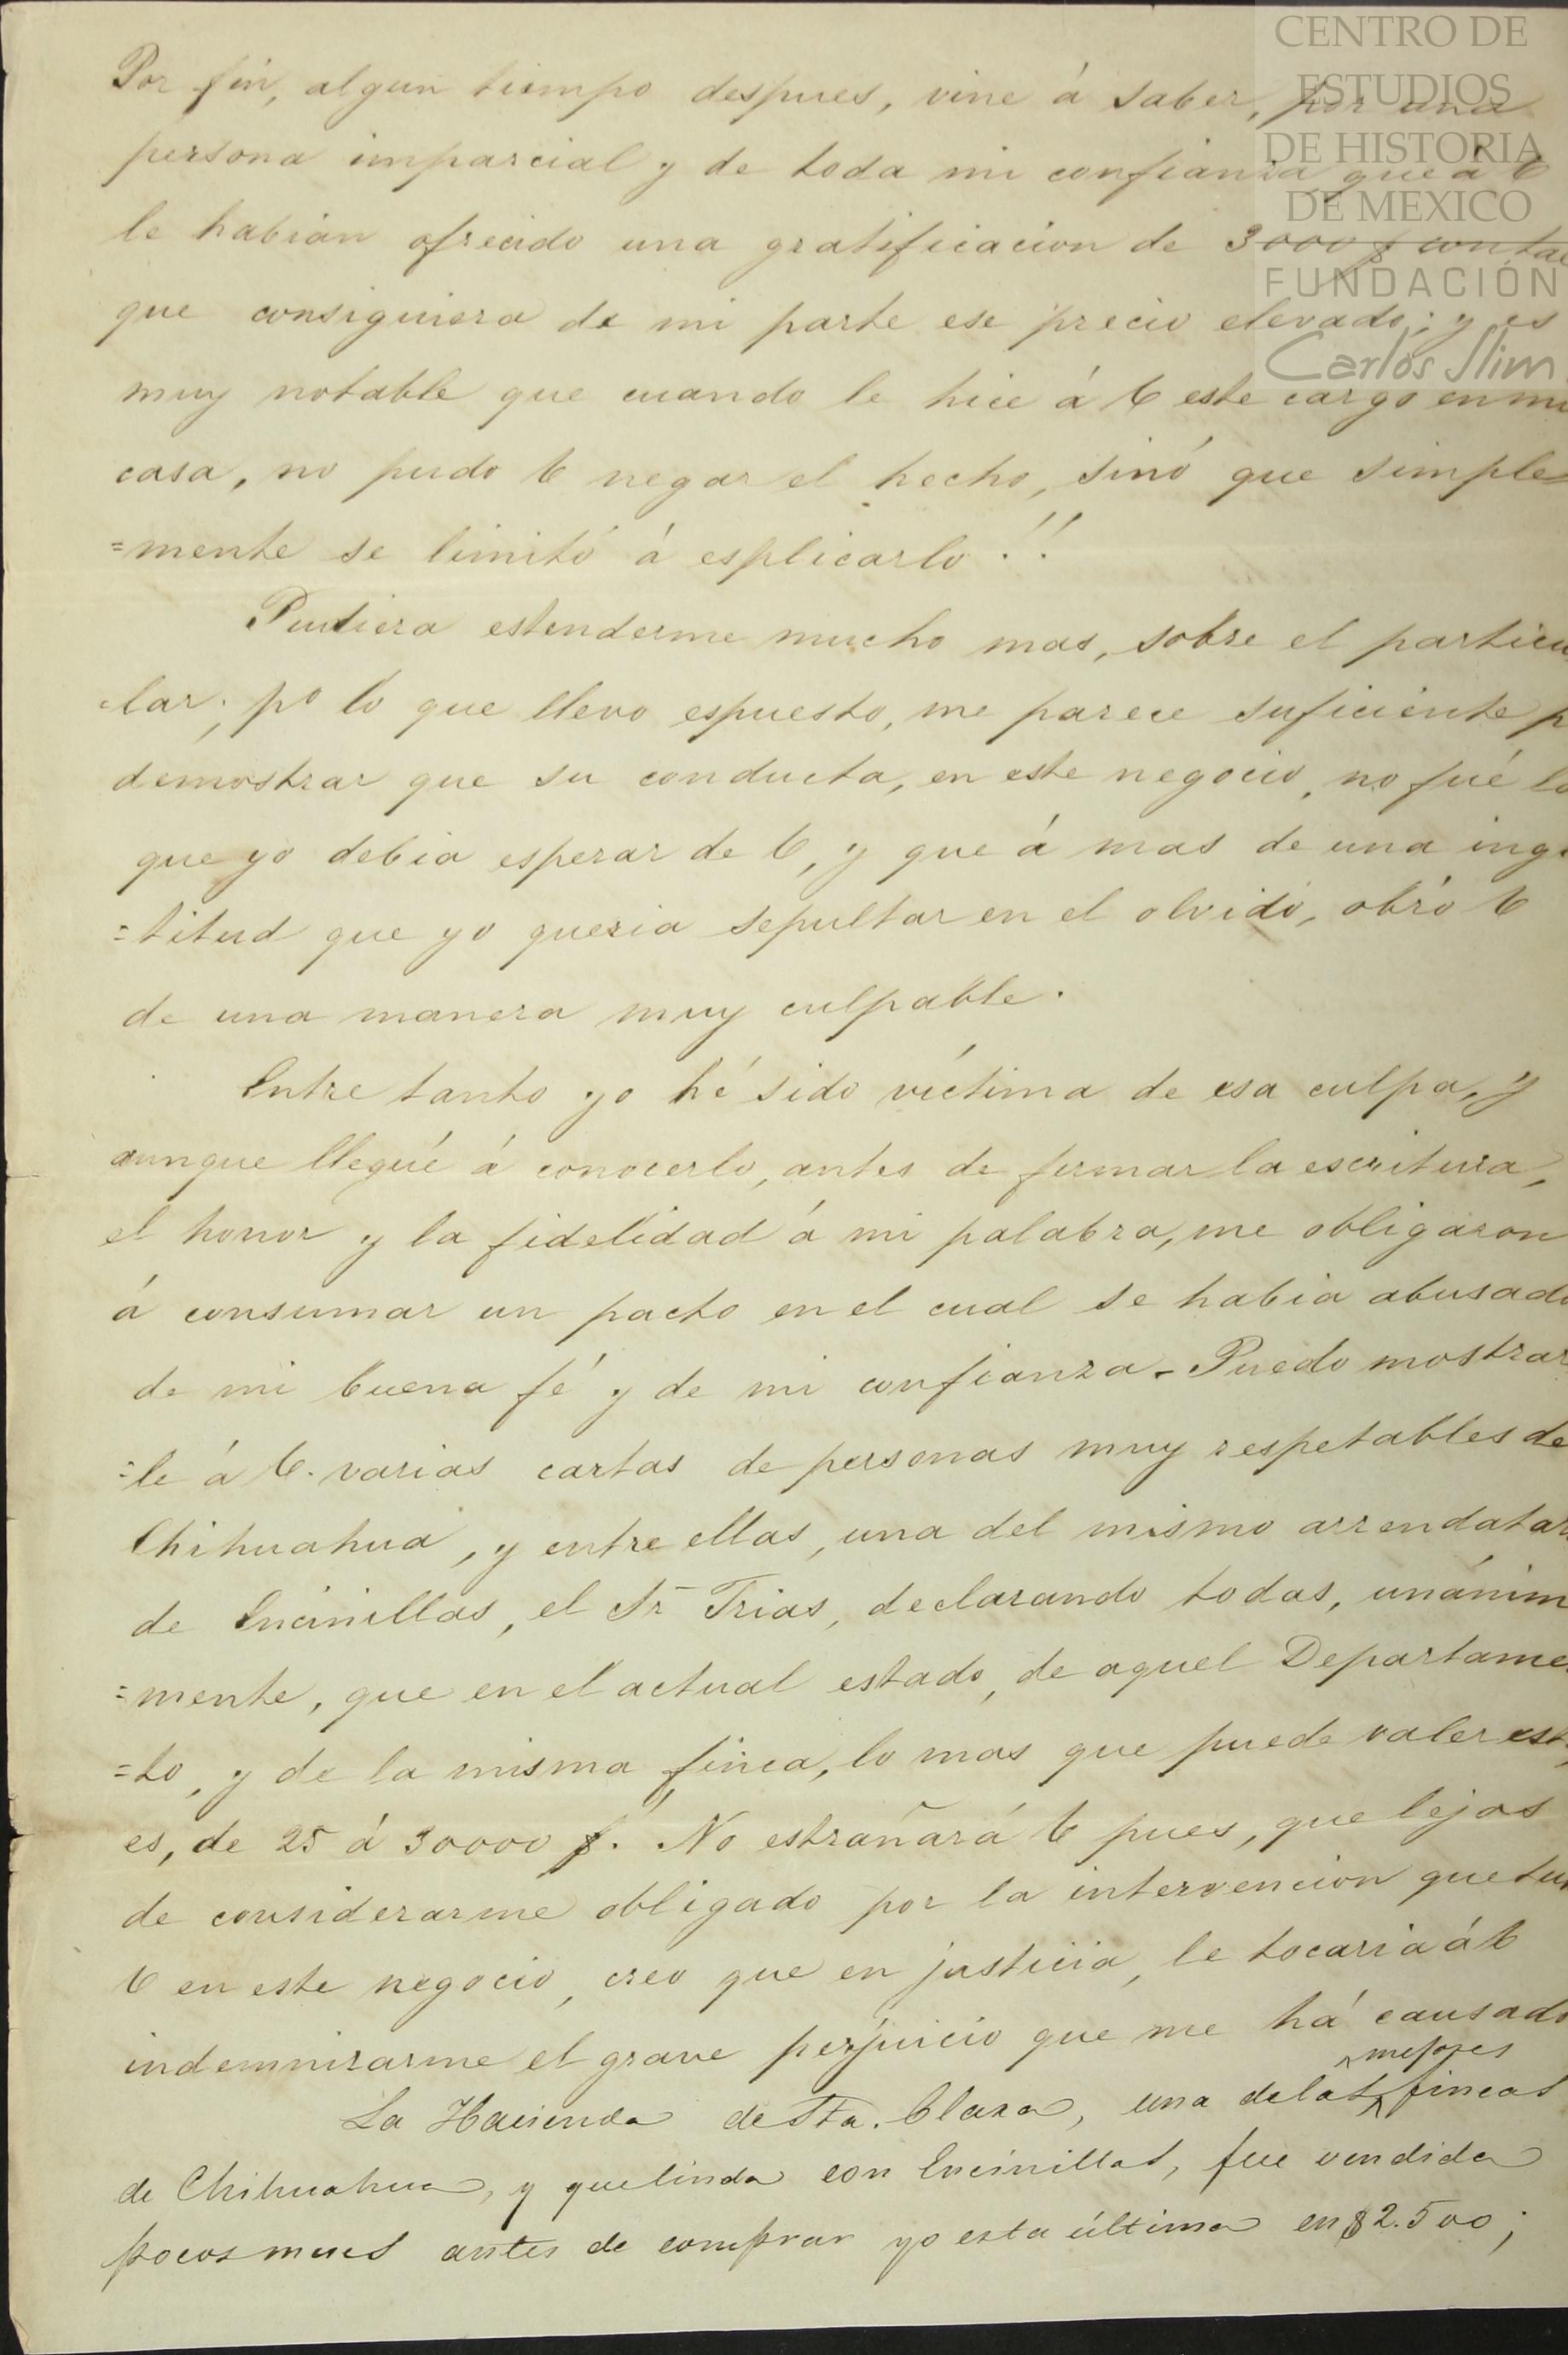 CENTRO DE
ESTUDIOS
DE HISTORIA
DE MEXICO
FUNDACIÓN
Carlos Slim
Por fin, algun tiempo despues, vine á saber, por una
persona imparcial y de toda mi confianza que á V
le habian ofrecido una gratificacion de 3000 $ con tal
que consiguiera de mi parte ese precio elevado; y es
muy notable que cuando le hice á V este cargo en mi
casa, no pudo V negar el hecho, sinó que simple=
=mente se limitó á esplicarlo!!
Pudiera estenderme mucho mas, sobre el particu
=lar; po lo que llevo espuesto, me parece suficiente p
demostrar que su conducta, en este negocio, no fué la
que yo debia esperar de V, y que á mas de una ingr
=titud que yo queria sepultar en el olvido, obró V
de una manera muy culpable.
Entre tanto yo hé sido víctima de esa culpa, y
aunque llegué á conocerlo, antes de firmar la escritura,
el honor y la fidelidad á mi palabra, me obligaron
á consumar un pacto en el cual se habia abusado
de mi buena fé y de mi confianza - Puedo mostrar
=le á V. varias cartas de personas muy respetables de
Chihuahua, y entre ellas, una del mismo arrendatar
de Encinillas, el Sr Trias, declarando todas, unánim
=mente, que en el actual estado, de aquel Departame
=to, y de la misma finca, lo mas que puede valer est
es, de 25 á 30000 $. No estrañará V pues, que lejos
de considerarme obligado por la intervencion que tuv
V en este negocio, creo que en justicia, le tocaria á V
indemnizarme el grave perjuicio que me há causado
La Hacienda de Sta. Clara, una de las mejores fincas
de Chihuahua, y que linda con Encinillas, fue vendida
pocos meses antes de comprar yo esta última en $2.500;